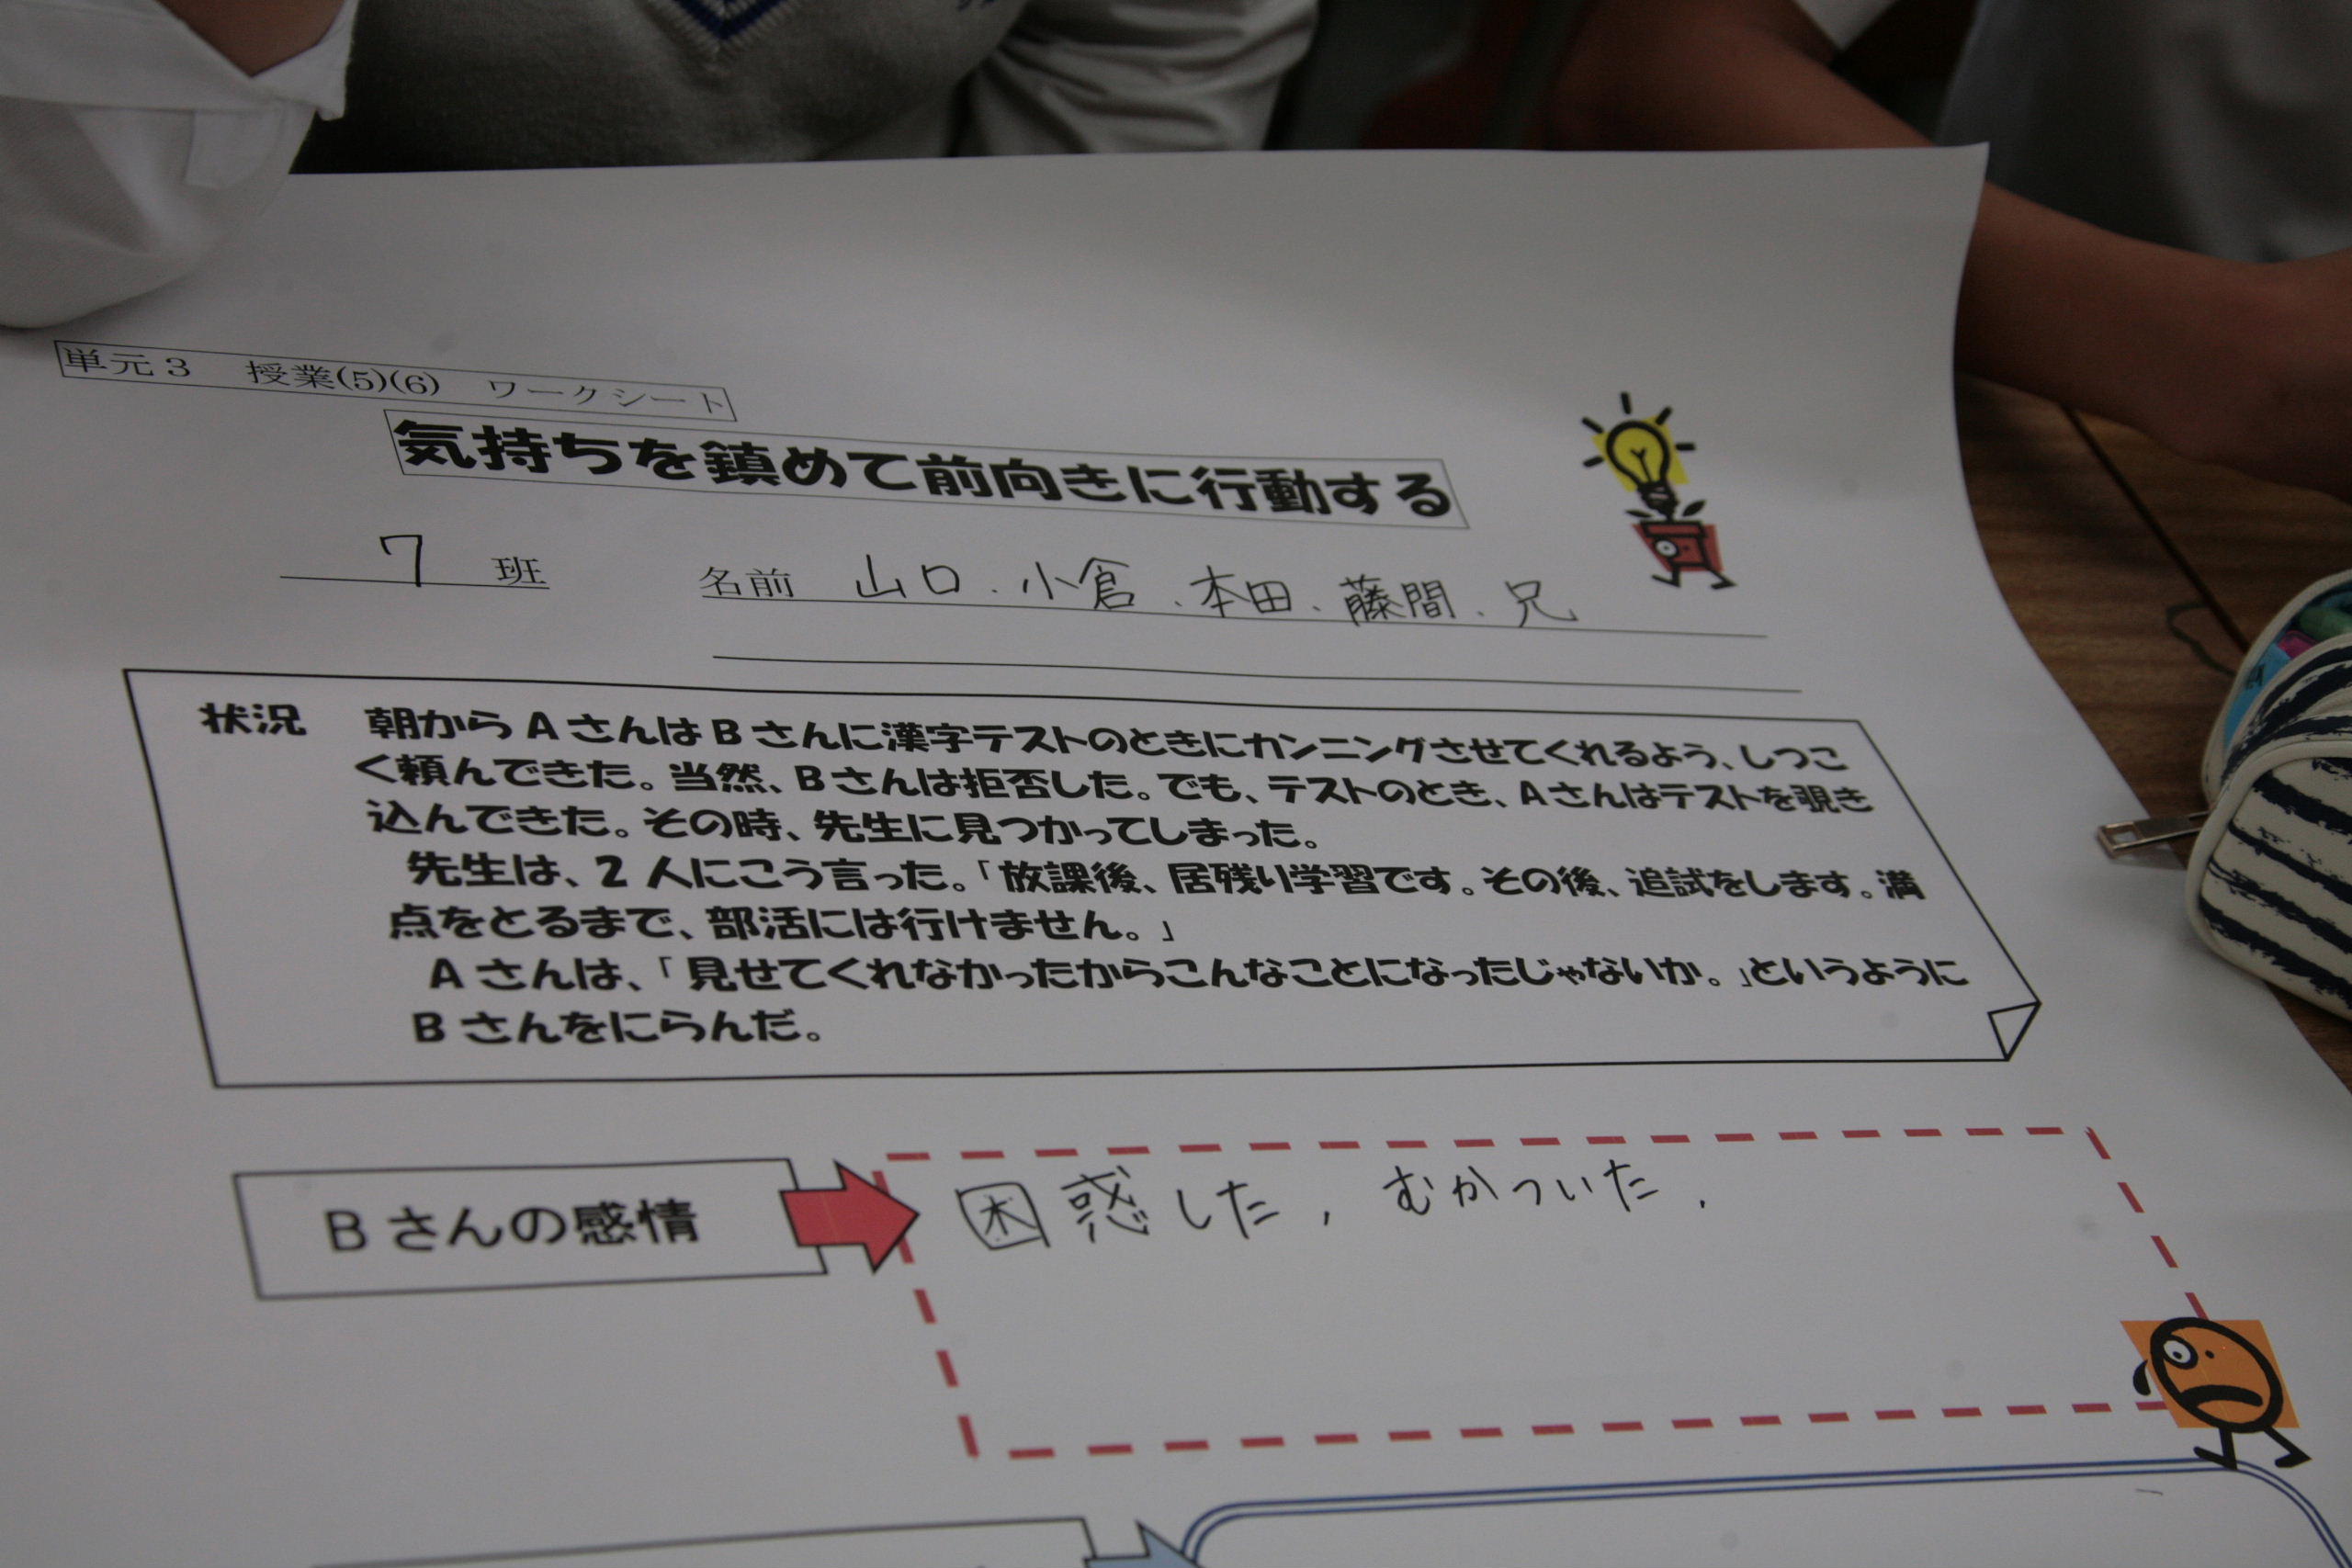 単元3　授業(5)(6)　ワークシート
気持ちを鎮めて前向きに行動する
7 班　名前 山口、小倉、本田、藤間、兄
状況　朝からAさんはBさんに漢字テストのときにカンニングさせてくれるよう、しつこ
く頼んできた。当然、Bさんは拒否した。でも、テストのとき、Aさんはテストを覗き
込んできた。その時、先生に見つかってしまった。
先生は、2人にこう言った。「放課後、居残り学習です。その後、追試をします。満
点をとるまで、部活には行けません。」
Aさんは、「見せてくれなかったからこんなことになったじゃないか。」というように
Bさんをにらんだ。
Bさんの感情
困惑した，むかついた，